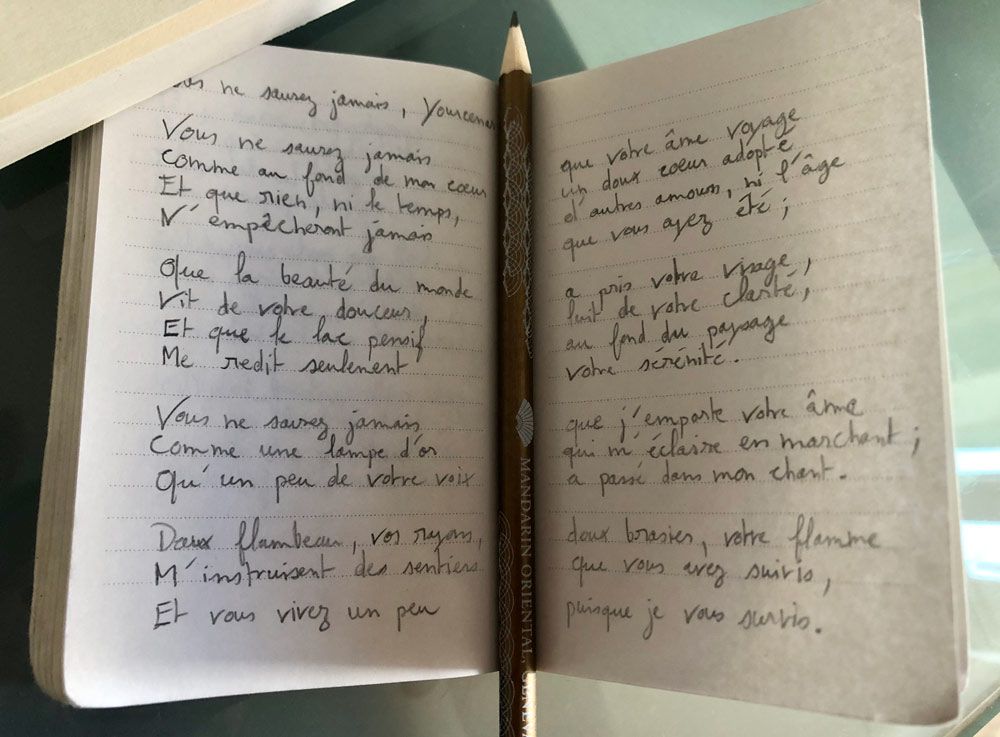 ne saurez jamais, Yourcenar
Vous ne saurez jamais que votre âme voyage
Comme au fond de mon coeur un doux coeur adopté
Et que rien, ni le temps, d'autres amours, ni l'âge
N'empêcheront jamais que vous ayez été ;
Que la beauté du monde a pris votre visage,
Vit de votre douceur, luit de votre clarté,
Et que le lac pensif au fond du paysage
Me redit seulement votre sérénité.
Vous ne saurez jamais que j'emporte votre âme
Comme une lampe d'or qui m'éclaire en marchant ;
Qu'un peu de votre voix a passé dans mon chant.
Doux flambeau, vos rayons, doux brasier, votre flamme
M'instruisent des sentiers que vous avez suivis,
Et vous vivez un peu puisque je vous survis.
MANDARIN ORIENTAL, GENEV